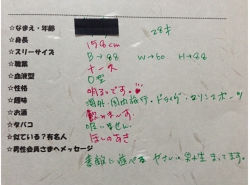 ☆なまえ・年齢 28才
☆身長 158cm
☆スリーサイズ B→88 W→60 H→88
☆職業 ナース
☆血液型 O型
☆性格 明るいです。
☆趣味 海外・国内旅行。ドライブ。マリンスポーツ
☆お酒 飲みまーす
☆タバコ 吸いません。
☆似ている?有名人
☆男性会員さまへメッセージ
素敵に遊べる やさしい 待ってます。